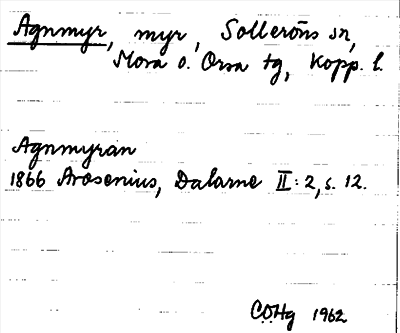 Agnmyr, myr, Solleröns sn,
Mora o. Orsa tg, Kopp. l.
Agnmyran
1866 Arosenius, Dalarne II: 2, s. 12.
COHg 1962